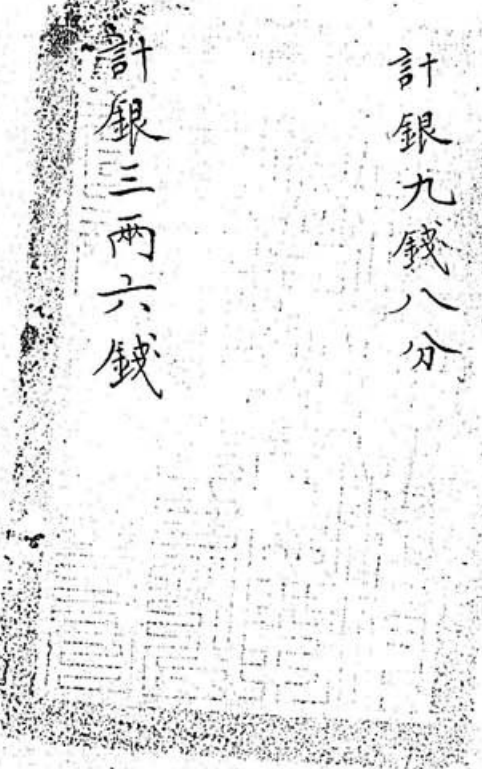 計銀九錢八分
計銀三兩六錢